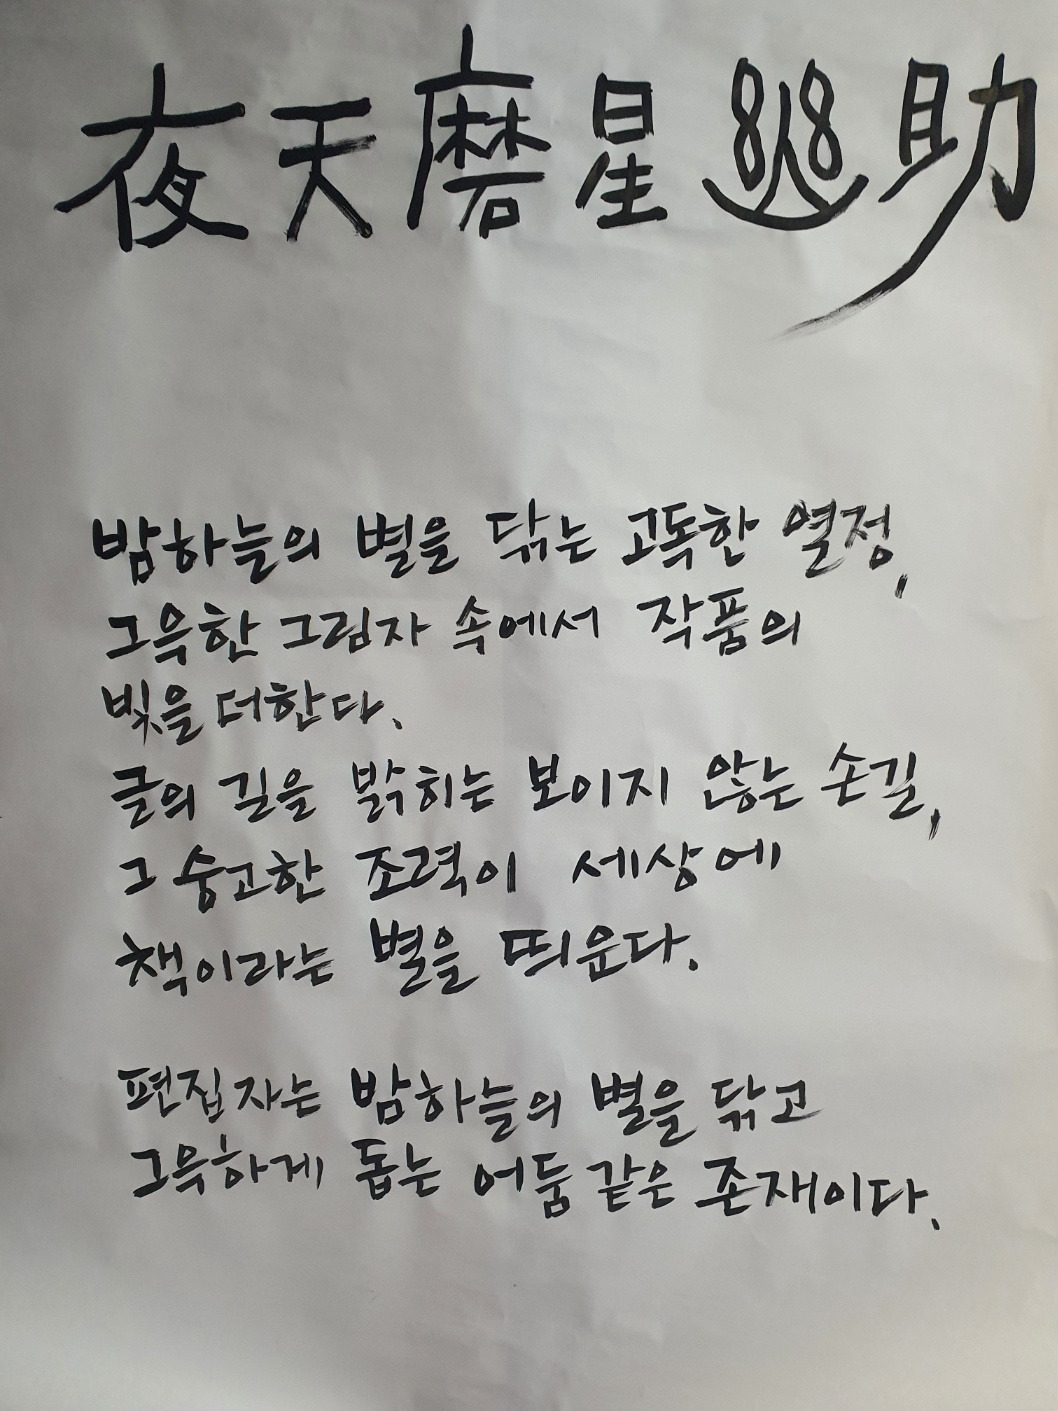 夜天磨星幽助
밤하늘의 별을 닦는 고독한 열정,
그윽한 그림자 속에서 작품의
빛을 더한다.
글의 길을 밝히는 보이지 않는 손길,
그 숭고한 조력이 세상에
책이라는 별을 띄운다.
편집자는 밤하늘의 별을 닦고
그윽하게 돕는 어둠 같은 존재이다.